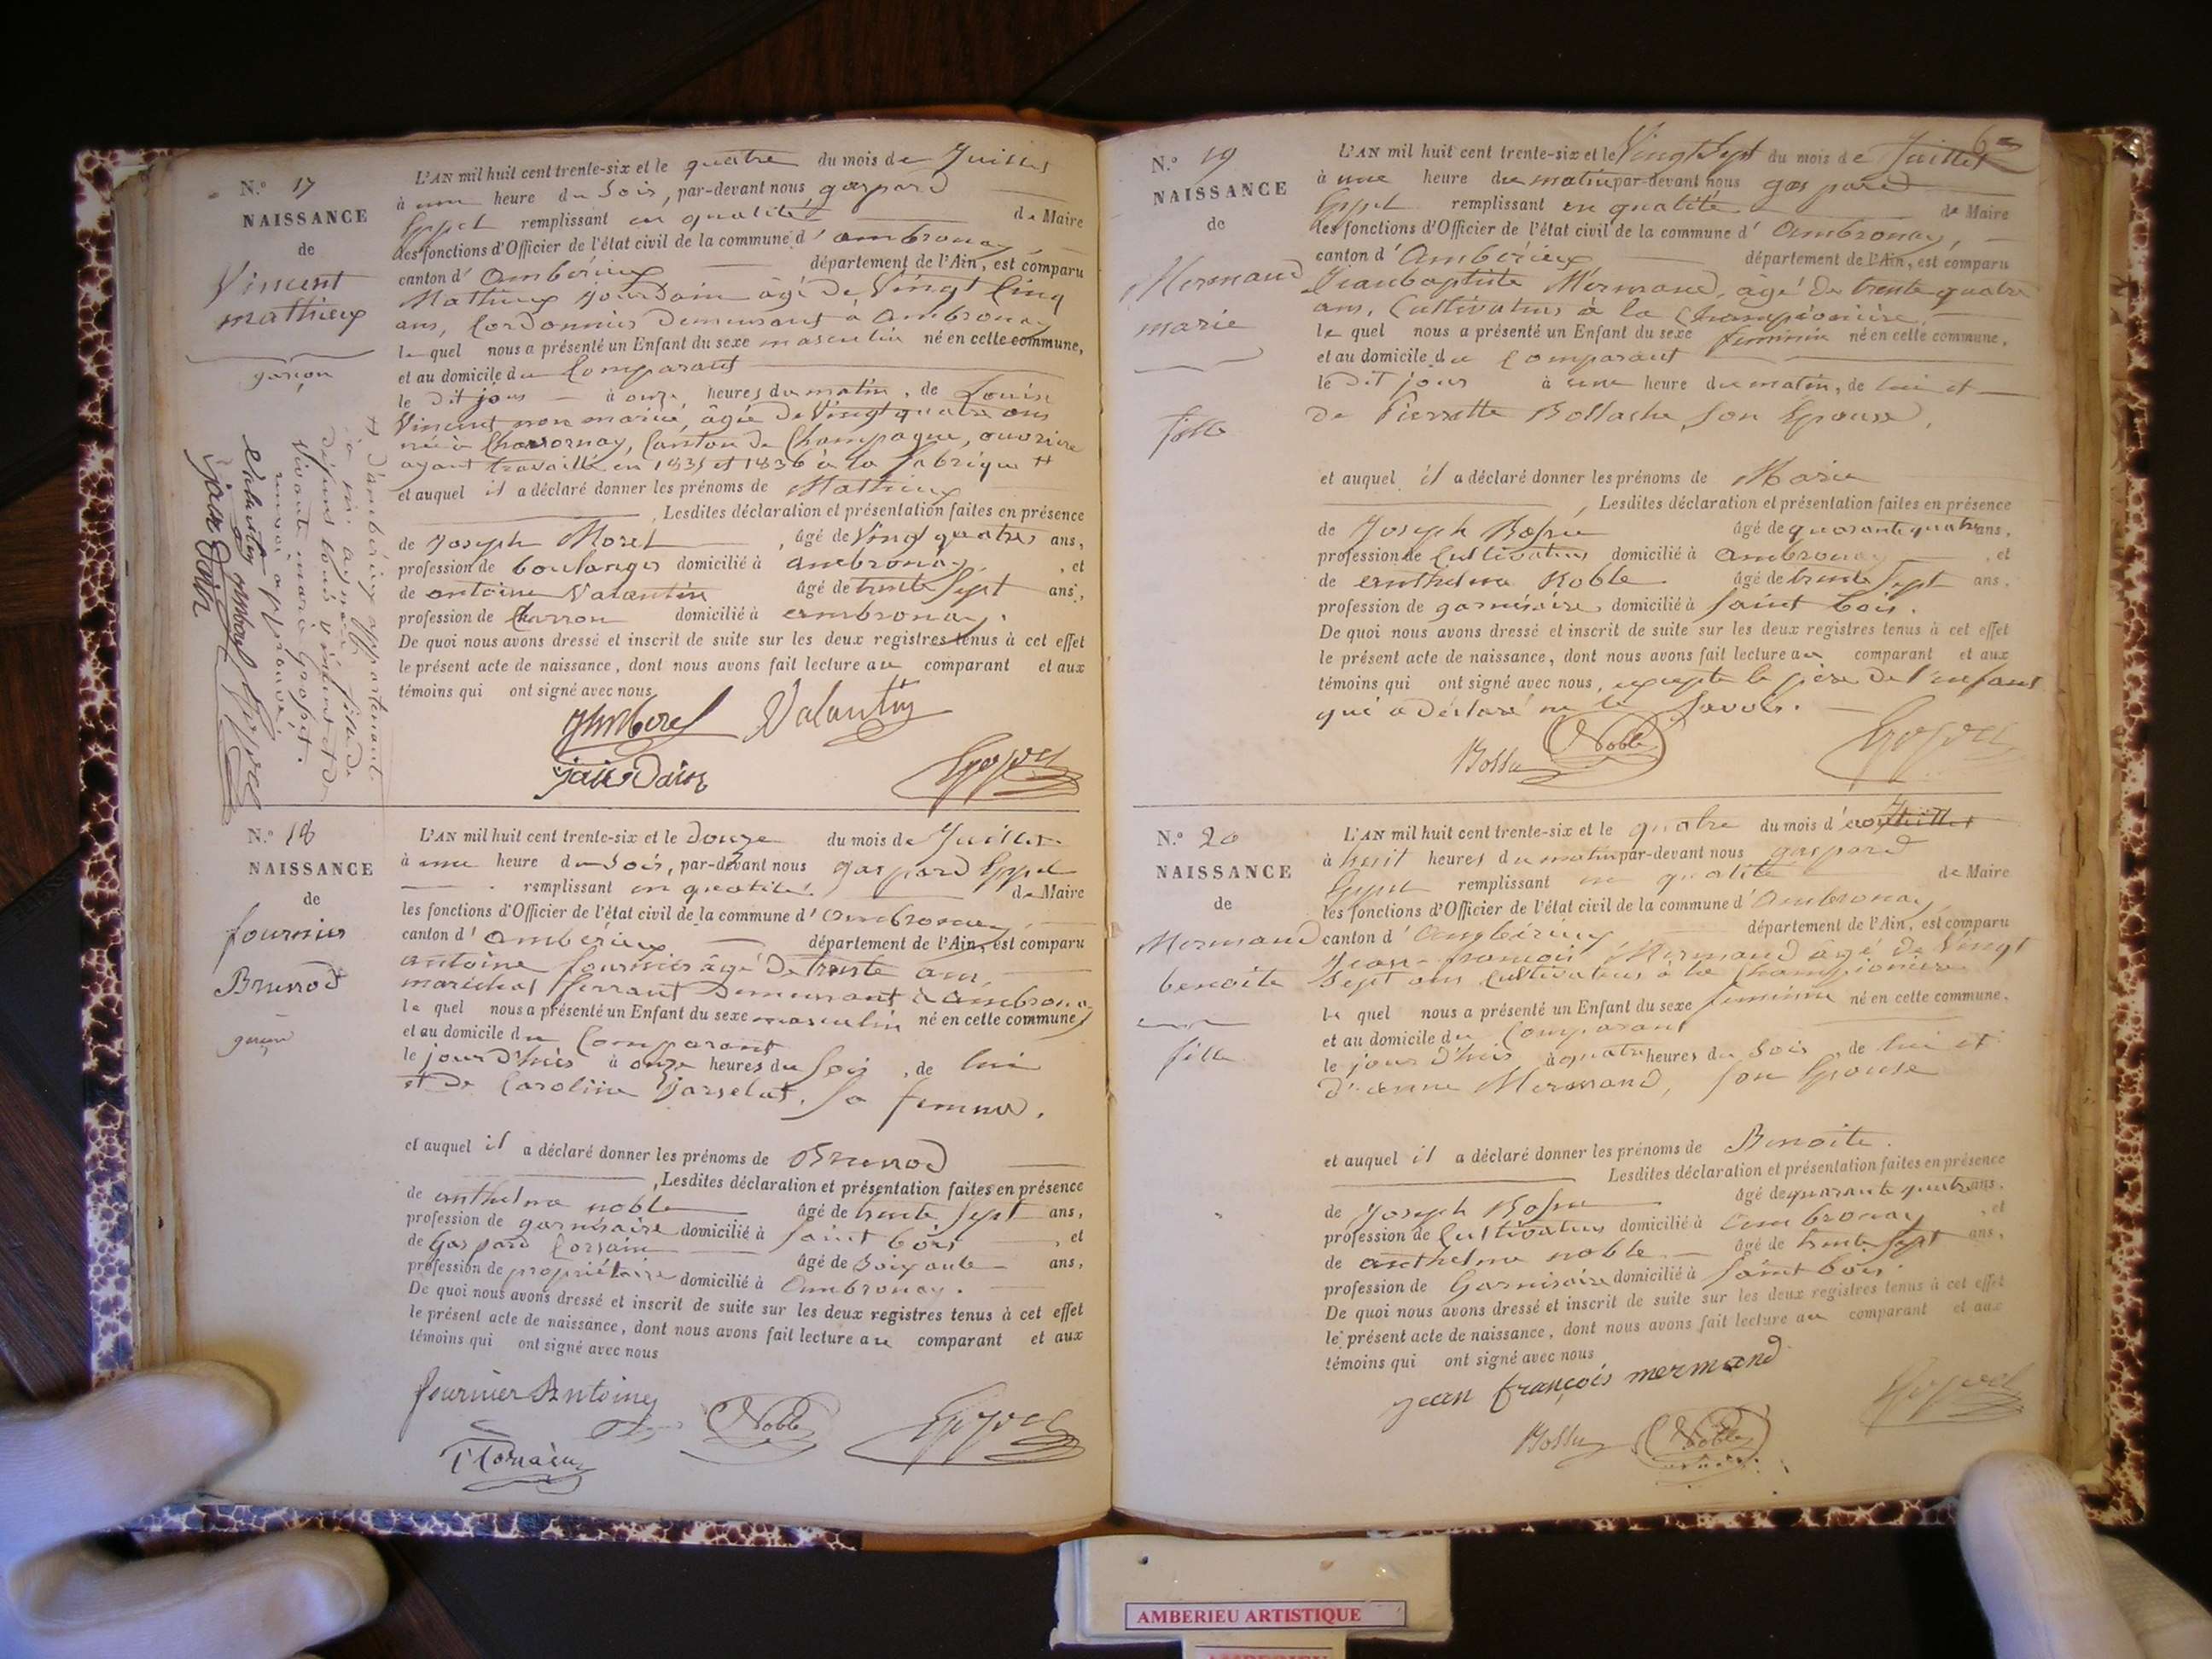 N.º 17
NAISSANCE
de
Vincent
mathieux
garçon
L'AN mil huit cent trente-six et le quatre du mois de Juillet
à une heure du Soir, par-devant nous gaspard
Eppel remplissant en qualité de Maire
les fonctions d'Officier de l'état civil de la commune d'ambronay,
canton d'Ambérieux département de l'Ain, est comparu
Mathieux Jourdain âgé de Vingt Cinq
ans, Cordonnier Demeurant à Ambronay
le quel nous a présenté un Enfant du sexe masculin né en cette commune,
et au domicile du Comparant
le dit jour à onze heures du matin, de Louise
Vincent non mariée, âgée de Vingt quatre ans
née à Chavornay, Canton de Champagne, ouvrière
ayant travaillé en 1835 et 1836 à la fabrique #
et auquel il a déclaré donner les prénoms de Mathieux
Lesdites déclaration et présentation faites en présence
de Joseph Morel, âgé de Vingt quatre ans,
profession de boulanger domicilié à ambronay, et
de antoine Valantin âgé de trente Sept ans,
profession de Charron domicilié à ambronay.
De quoi nous avons dressé et inscrit de suite sur les deux registres tenus à cet effet
le présent acte de naissance, dont nous avons fait lecture au comparant et aux
témoins qui ont signé avec nous
Valantin
jourdain
Eppel
# d'ambérieux appartenant
à mr. aynard fille de
défunt Louis Vincent et de
Vivante marie grosjet.
renvoi approuvé.
Valantin Eppel
jourdain
N.º 18
NAISSANCE
de
fournier
Brunod
garçon
L'AN mil huit cent trente-six et le Douze du mois de Juillet
à une heure du Soir, par-devant nous gaspard Eppel
remplissant en qualité de Maire
les fonctions d'Officier de l'état civil de la commune d'ambronay,
canton d'ambérieux département de l'Ain, est comparu
antoine fournier âgé de trente ans,
maréchal ferrant Demeurant à Ambronay
le quel nous a présenté un Enfant du sexe masculin né en cette commune,
et au domicile du Comparant
le jour d'hier à onze heures du Soir, de lui
et de Caroline Jarselat, Sa femme.
et auquel il a déclaré donner les prénoms de Brunod
Lesdites déclaration et présentation faites en présence
de anthelme noble âgé de trente Sept ans,
profession de garnisaire domicilié à Saint bois, et
de Gaspard Corsain âgé de Soixante ans,
profession de propriétaire domicilié à Ambronay.
De quoi nous avons dressé et inscrit de suite sur les deux registres tenus à cet effet
le présent acte de naissance, dont nous avons fait lecture au comparant et aux
témoins qui ont signé avec nous
fournier Antoine
Noble
Eppel
N.º 19
NAISSANCE
de
Mermand
marie
fille
L'AN mil huit cent trente-six et le Vingt Sept du mois de Juillet
à une heure du matin par-devant nous gaspard
Eppel remplissant en qualité de Maire
les fonctions d'Officier de l'état civil de la commune d'Ambronay,
canton d'Ambérieux département de l'Ain, est comparu
Jeanbaptiste Mermand, âgé de trente quatre
ans, Cultivateur à la Championière,
le quel nous a présenté un Enfant du sexe féminin né en cette commune,
et au domicile du Comparant
le dit jour à une heure du matin, de lui et
de Pierrette Bollache, Son Epouse,
et auquel il a déclaré donner les prénoms de Marie
Lesdites déclaration et présentation faites en présence
de Joseph Bossu âgé de quarante quatre ans,
profession de Cultivateur domicilié à Ambronay, et
de anthelme Noble âgé de trente Sept ans,
profession de garnisaire domicilié à Saint bois.
De quoi nous avons dressé et inscrit de suite sur les deux registres tenus à cet effet
le présent acte de naissance, dont nous avons fait lecture au comparant et aux
témoins qui ont signé avec nous, excepté le père de l'enfant
qui a déclaré ne le Savoir.
Bossu
Noble
Eppel
N.º 20
NAISSANCE
de
Mermand
benoite
fille
L'AN mil huit cent trente-six et le quatre du mois d'août Juillet
à huit heures du matin par-devant nous gaspard
Eppel remplissant en qualité de Maire
les fonctions d'Officier de l'état civil de la commune d'Ambronay,
canton d'Ambérieux département de l'Ain, est comparu
Jean-françois Mermand âgé de Vingt
Sept ans Cultivateur à la Championière
le quel nous a présenté un Enfant du sexe féminin né en cette commune,
et au domicile du Comparant
le jour d'hier à quatre heures du Soir, de lui et
d'anne Mermand, Son Epouse
et auquel il a déclaré donner les prénoms de Benoite.
Lesdites déclaration et présentation faites en présence
de Joseph Bossu âgé de quarante quatre ans,
profession de Cultivateur domicilié à Ambronay, et
de anthelme noble âgé de trente Sept ans,
profession de Garnisaire domicilié à Saint bois.
De quoi nous avons dressé et inscrit de suite sur les deux registres tenus à cet effet
le présent acte de naissance, dont nous avons fait lecture au comparant et aux
témoins qui ont signé avec nous
jean françois mermand
Bossu
Noble
Eppel
AMBERIEU ARTISTIQUE